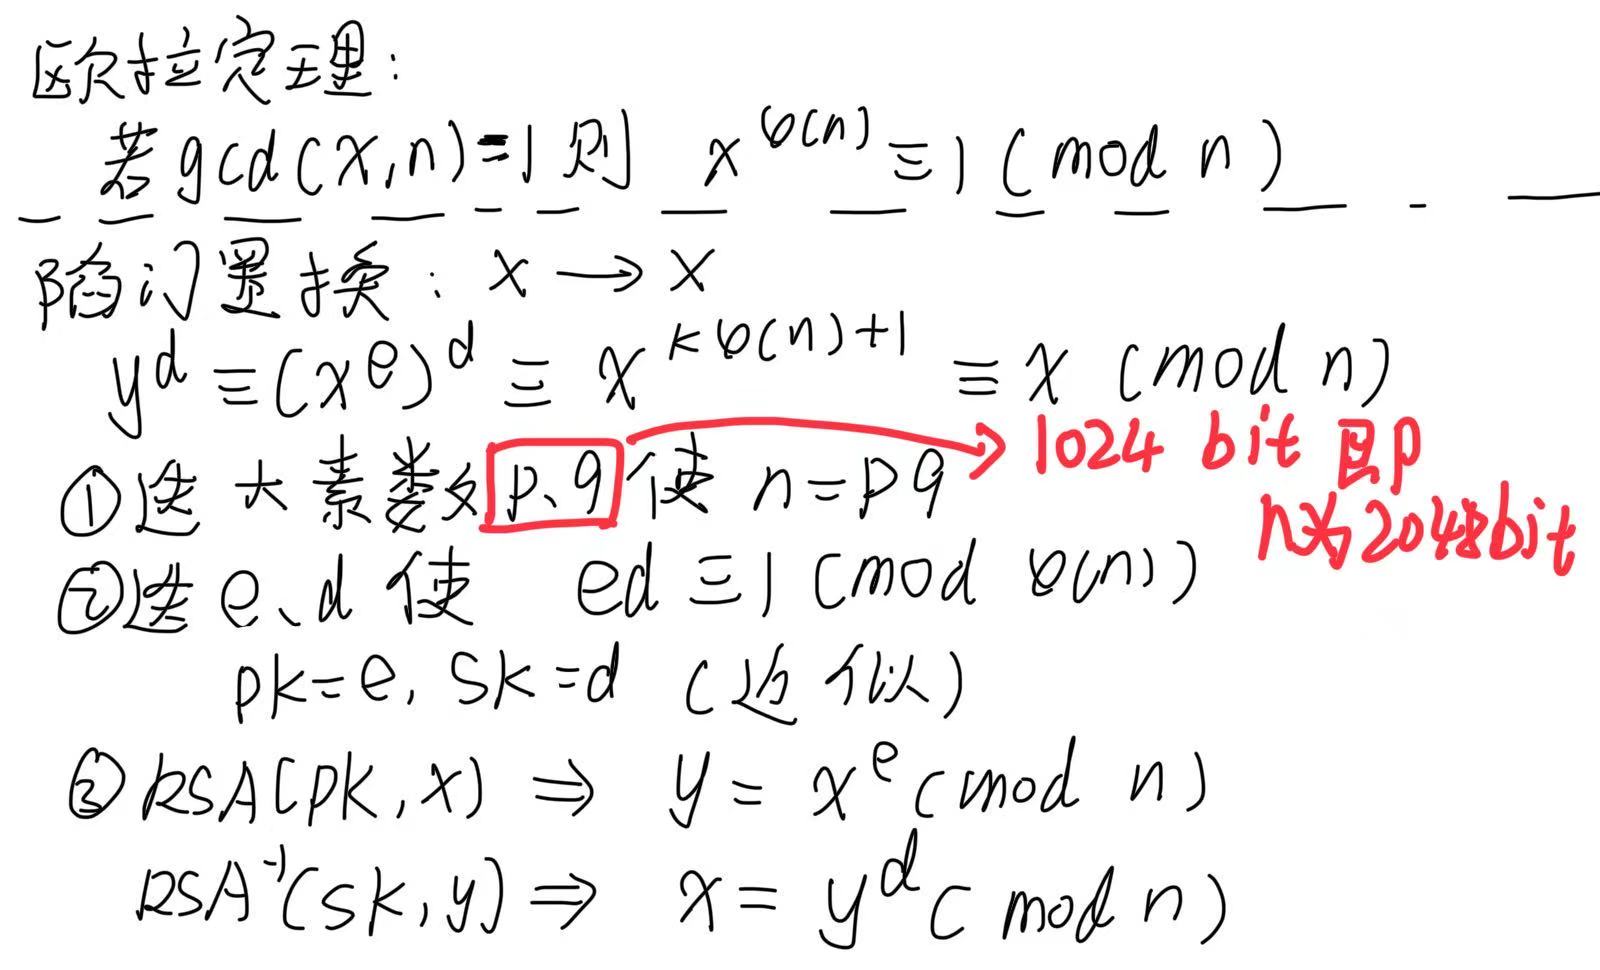 欧拉定理:
若gcd(x,n)=1则 x^φ(n) ≡1(mod n)
陷门置换: x → x
y^d ≡(x^e)^d ≡ x^kφ(n)+1 ≡ x (mod n)
①选大素数p、q使 n=pq
→1024 bit 即
n为2048bit
②选e、d使 ed≡1(mod φ(n))
pk=e, sk=d (近似)
③RSA(pk,x) ⇒ y = x^e(mod n)
RSA^-1(sk,y) ⇒ x= y^d( mod n)